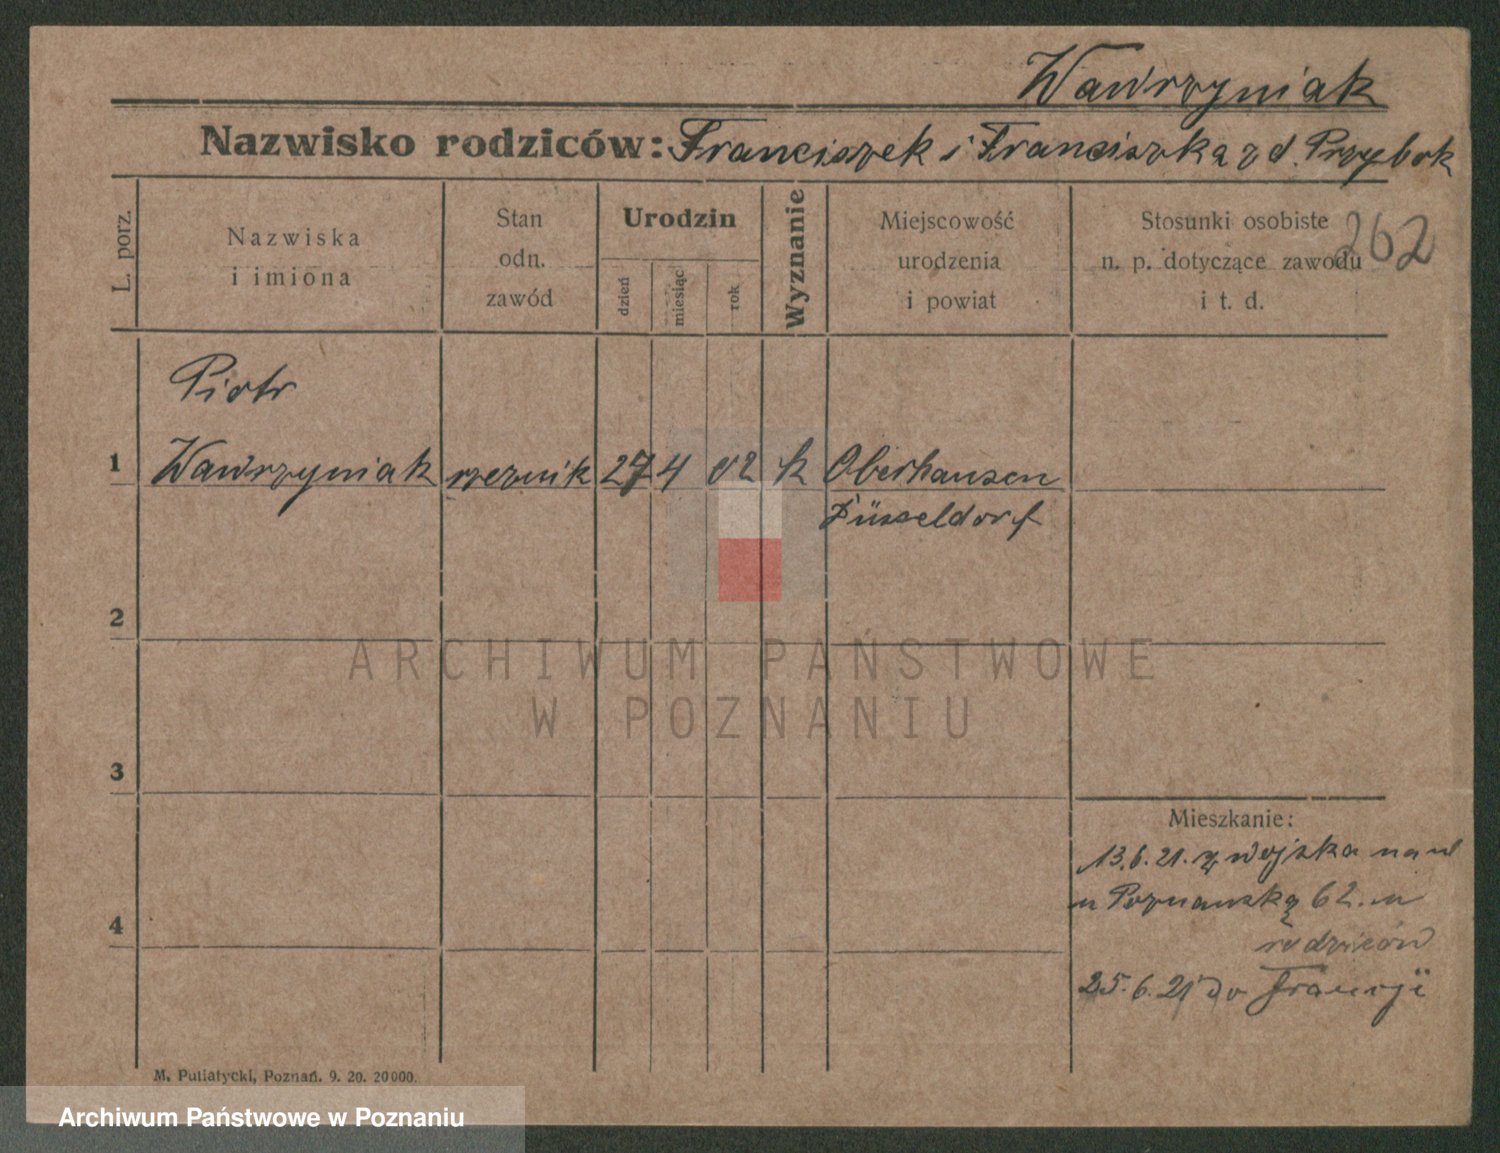 Wawrzyniak
Nazwisko rodziców: Franciszek i Franciszka z d. Przybok
L. porz.
Nazwiska
i imiona
Stan
odn.
zawód
Urodzin
dzień
miesiąc
rok
Wyznanie
Miejscowość
urodzenia
i powiat
Stosunki osobiste
n. p. dotyczące zawodu
i t. d.
262
Piotr
1 Wawrzyniak rzeznik 27 4 02 k Oberhausen
Düsseldorf
2
3
4
Mieszkanie:
13.6.21. z wojska na ul
Poznańską 62. u
rodziców
25.6.21 do Francji
M. Putiatycki, Poznań. 9. 20. 20000.
ARCHIWUM PAŃSTWOWE
W POZNANIU
Archiwum Państwowe w Poznaniu